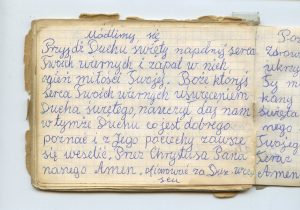 módlimy się
Przyjdź Duchu święty napełnij serca
Twoich wiernych i zapal w nich
ogień miłości Twojej. Boże któryś
serca Twoich wiernych oświeceniem
Ducha świętego, nauczył daj nam
w tymże Duchu co jest dobrego
poznać i z Jego pociechy zawsze
się weselić, Przez Chrystusa Pana
naszego Amen, ofiarować za
Zdrow
ukrzy
Ty m
kany
Święta
nego
Twojeg
Serca
Amen